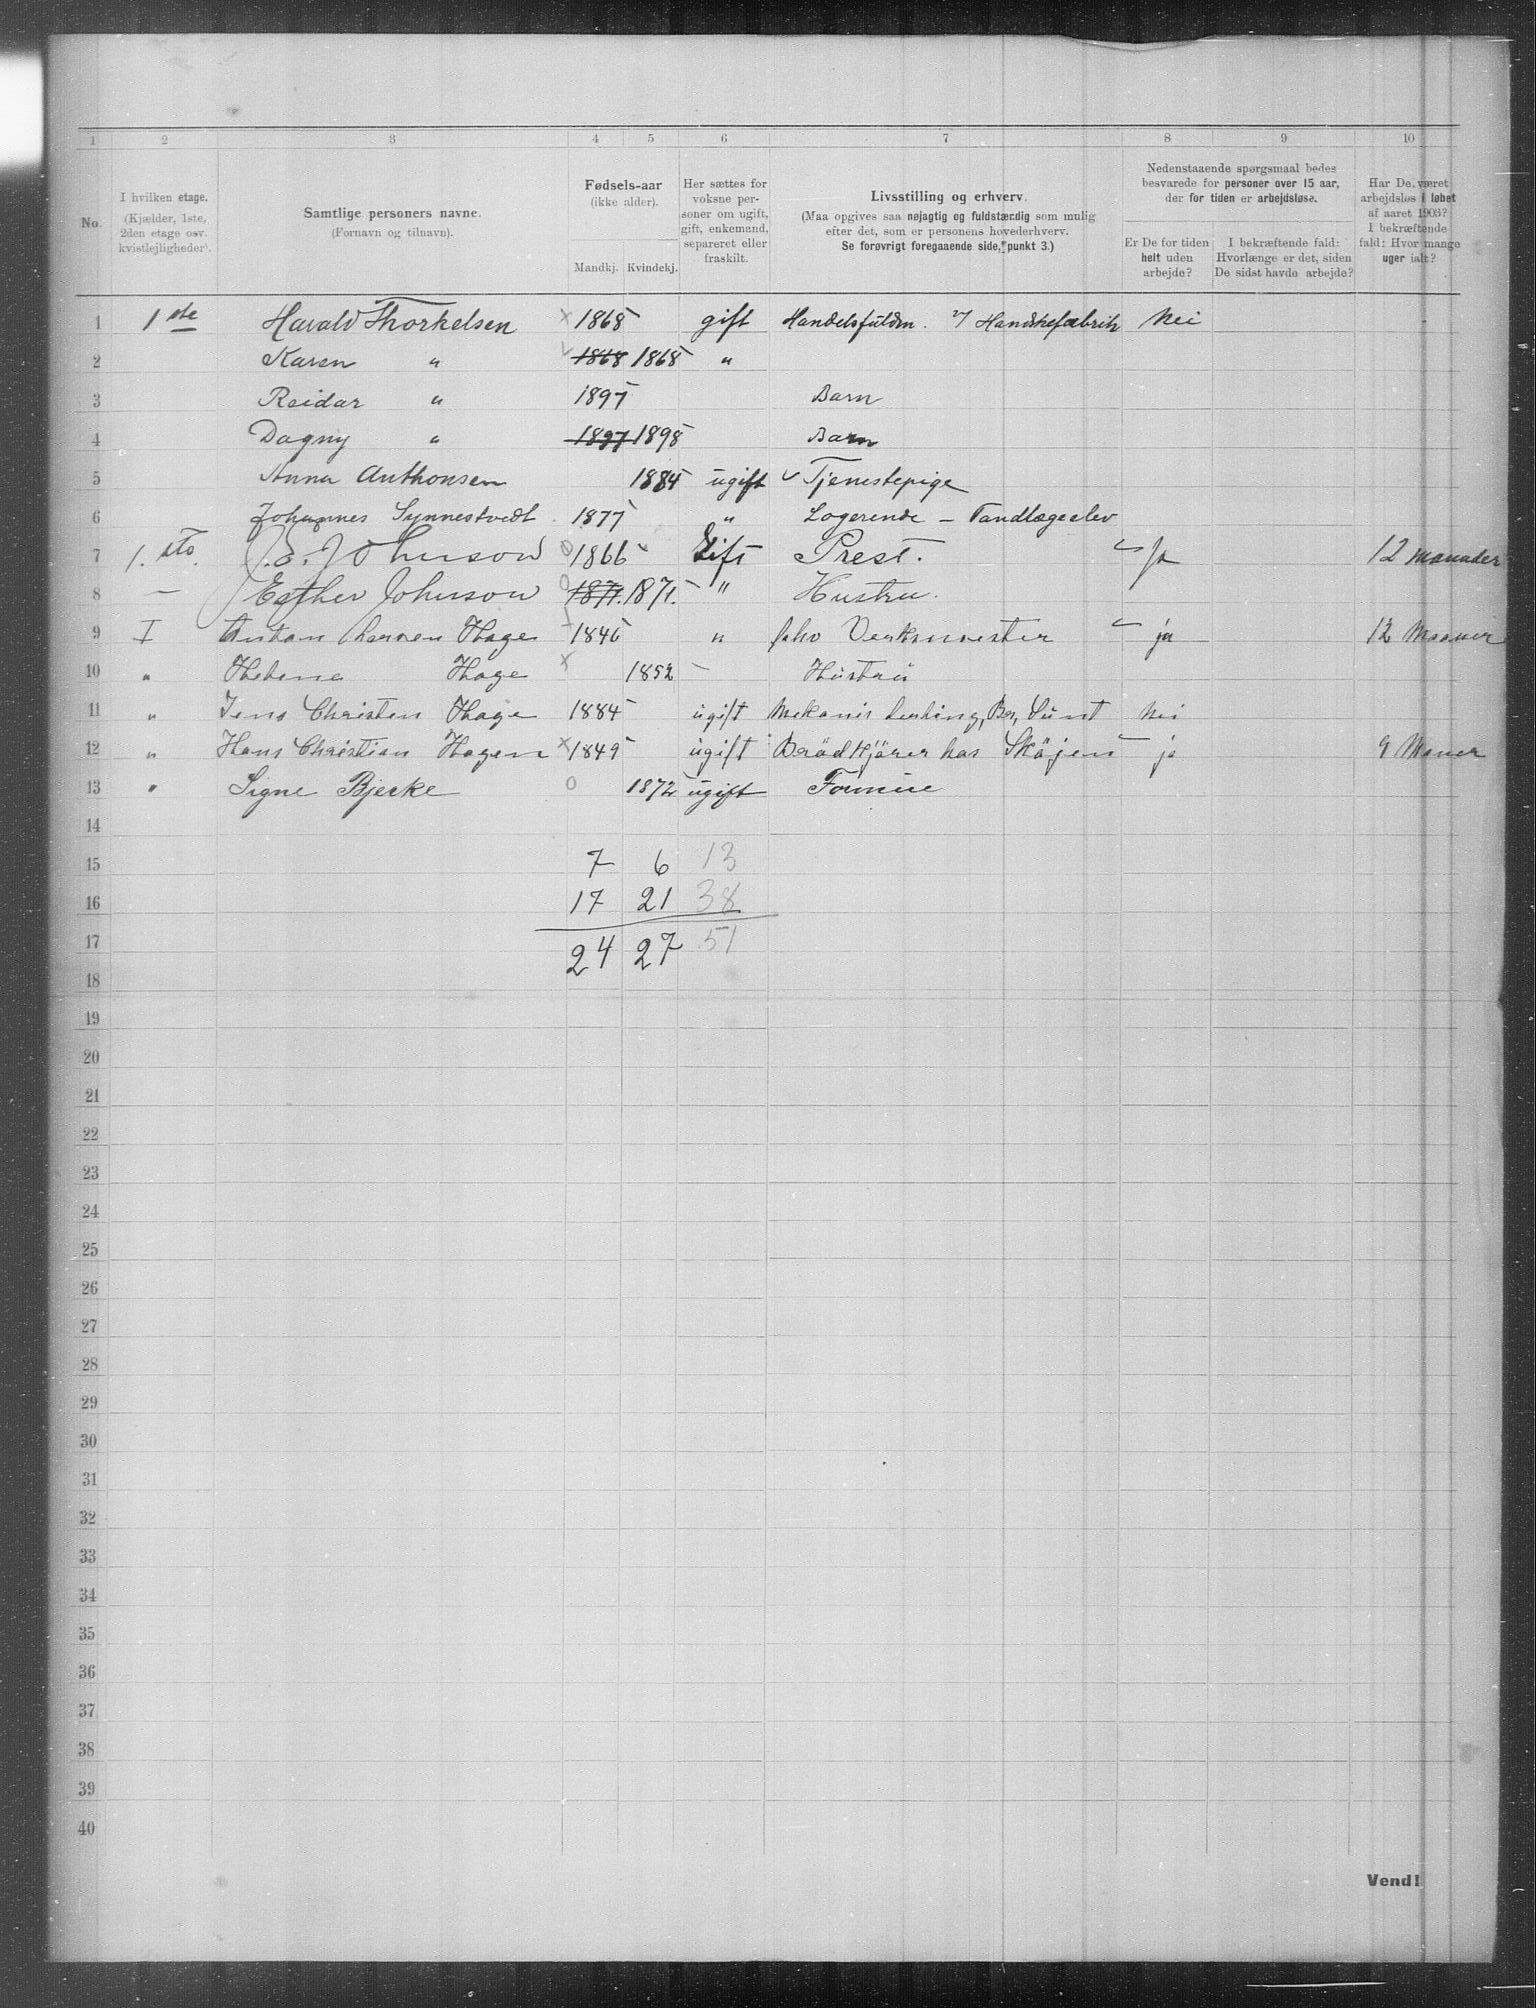 1 2 3 4 5 6 7 8 9 10
No.
I hvilken etage.
(Kjælder, 1ste,
2den etage osv.
kvistlejligheder).
Samtlige personers navne.
(Fornavn og tilnavn).
Fødsels-aar
(ikke alder).
Mandkj. Kvindekj.
Her sættes for
voksne per-
soner om ugift,
gift, enkemand,
separeret eller
fraskilt.
Livsstilling og erhverv.
(Maa opgives saa nøjagtig og fuldstændig som mulig
efter det, som er personens hovederhverv.
Se forøvrigt foregaaende side, punkt 3.)
Nedenstaaende spørgsmaal bedes
besvarede for personer over 15 aar,
der for tiden er arbejdsløse.
Er De for tiden
helt uden
arbejde?
I bekræftende fald:
Hvorlænge er det, siden
De sidst havde arbejde?
Har De været
arbejdsløs i løbet
af aaret 1903?
I bekræftende
fald: Hvor mange
uger ialt?
1 1ste Harald Thorkelsen × 1865 gift Handelsfuldm. Handskefabrik Nei
2 Karen " 1868 1868 "
3 Reidar " 1897 Barn
4 Dagny " 1897 1898 Barn
5 Anna Anthonsen 1884 ugift Tjenestepige
6 Johannes Synnestvedt 1877 " Logerende – Tandlægeelev
7 1. sto. E. Johnson 0 1866 Gift Prest. Ja 12 maander
8 – Esther Johnson 0 1871. 1871. " Hustru.
9 I Anton Larsen Hage 1846 " Verksmester ja 12 Maaner
10 " Helena Hage × 1852 – Hustru
11 " Jens Christen Hage 1884 ugift Mekanis Nei
12 " Hans Christian Hagen × 1849 ugift Brødkjører hos Skøjen ja 9 Maner
13 " Signe Bjerke 0 1872 ugift Formue
14
15 7 6 13
16 17 21 38
17 24 27 51
18
19
20
21
22
23
24
25
26
27
28
29
30
31
32
33
34
35
36
37
38
39
40
Vend!